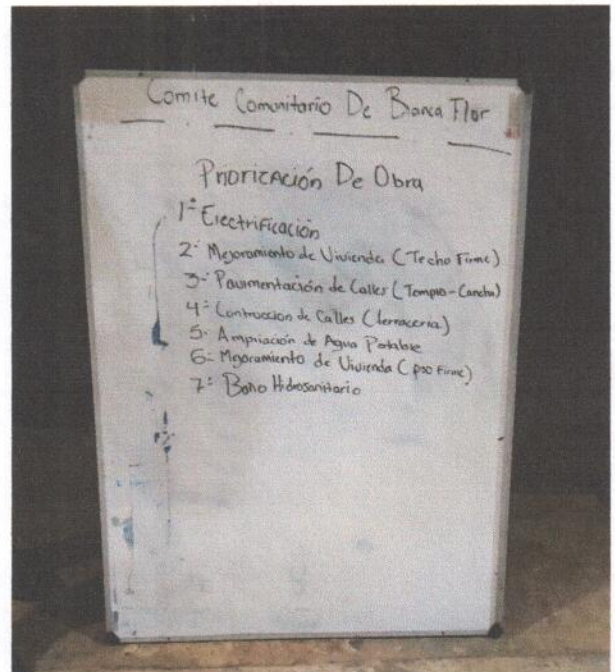 Comite Comunitario De Blanca Flor
Priorización De Obra
1º Electrificación
2º Mejoramiento de Vivienda (Techo Firme)
3º Pavimentación de Calles (Templo-Cancha)
4º Contruccion de Calles (terraceria)
5º Ampliación de Agua Potable
6º Mejoramiento de Vivienda (piso Firme)
7º Baño Hidrosanitario